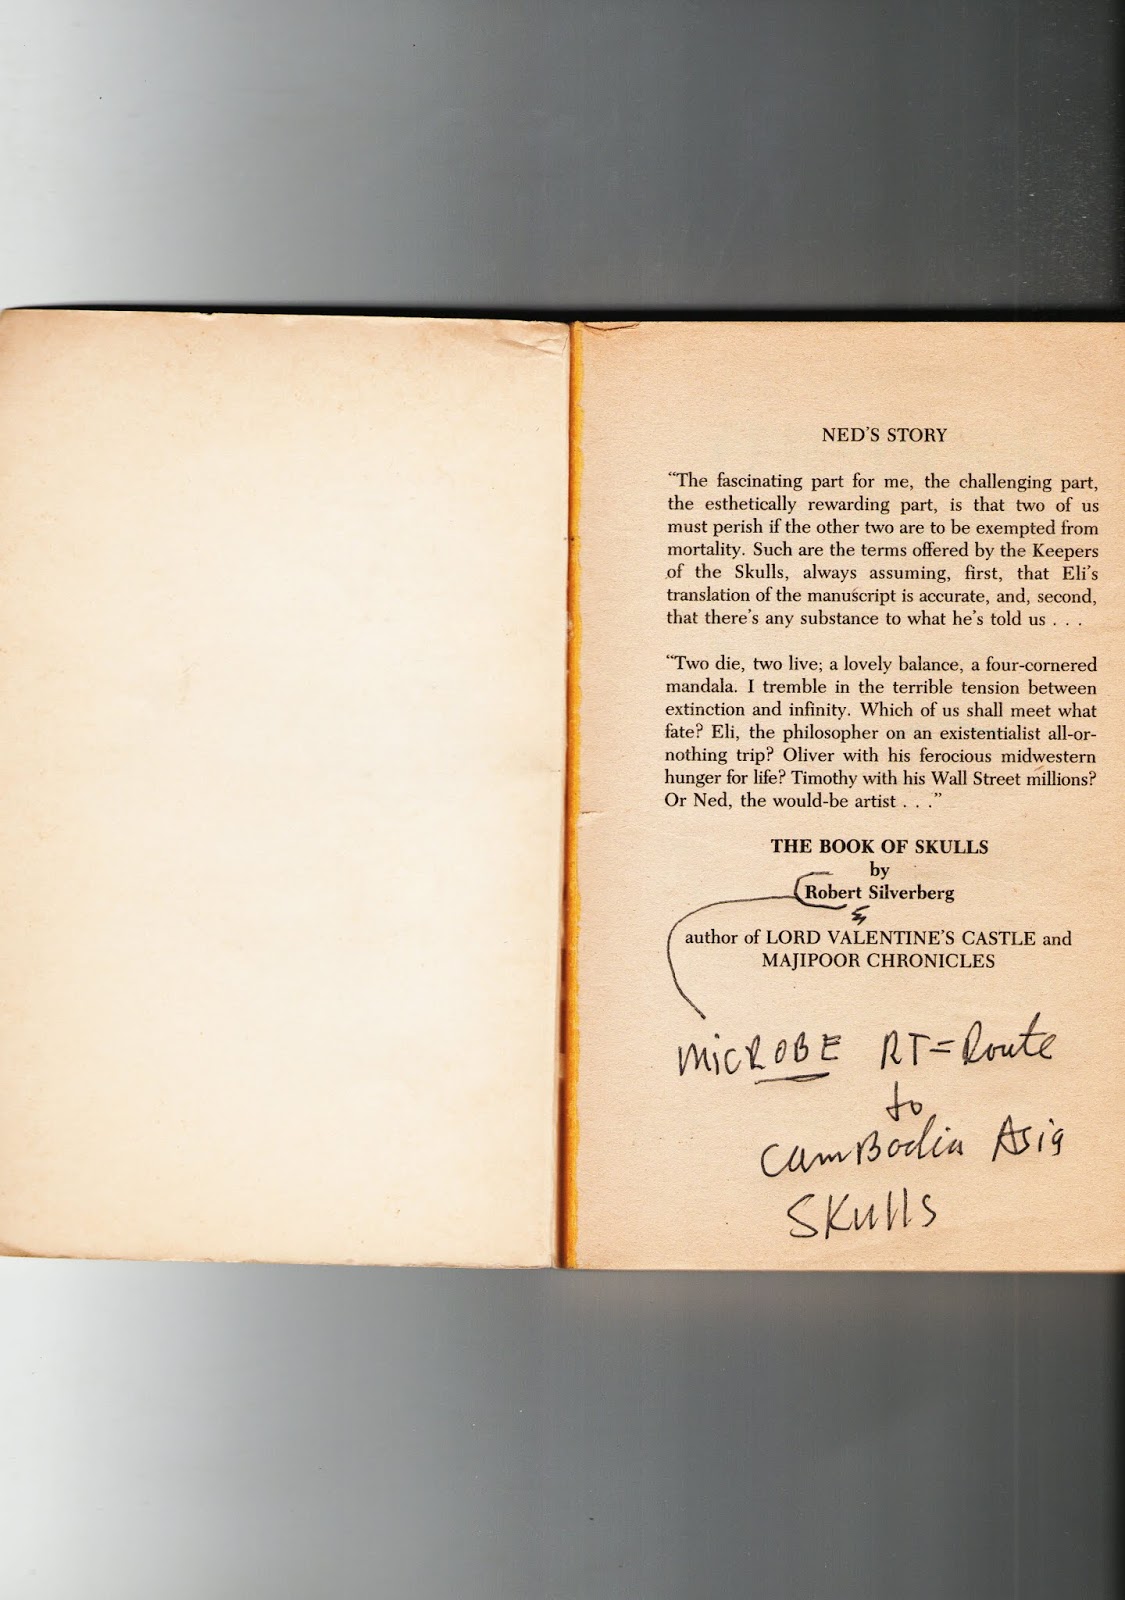 NED'S STORY
"The fascinating part for me, the challenging part,
the esthetically rewarding part, is that two of us
must perish if the other two are to be exempted from
mortality. Such are the terms offered by the Keepers
of the Skulls, always assuming, first, that Eli's
translation of the manuscript is accurate, and, second,
that there's any substance to what he's told us . . .
"Two die, two live; a lovely balance, a four-cornered
mandala. I tremble in the terrible tension between
extinction and infinity. Which of us shall meet what
fate? Eli, the philosopher on an existentialist all-or-
nothing trip? Oliver with his ferocious midwestern
hunger for life? Timothy with his Wall Street millions?
Or Ned, the would-be artist . . ."
THE BOOK OF SKULLS
by
Robert Silverberg
author of LORD VALENTINE'S CASTLE and
MAJIPOOR CHRONICLES
MicROBE RT=Route
to
CamBodia Asia
SKulls